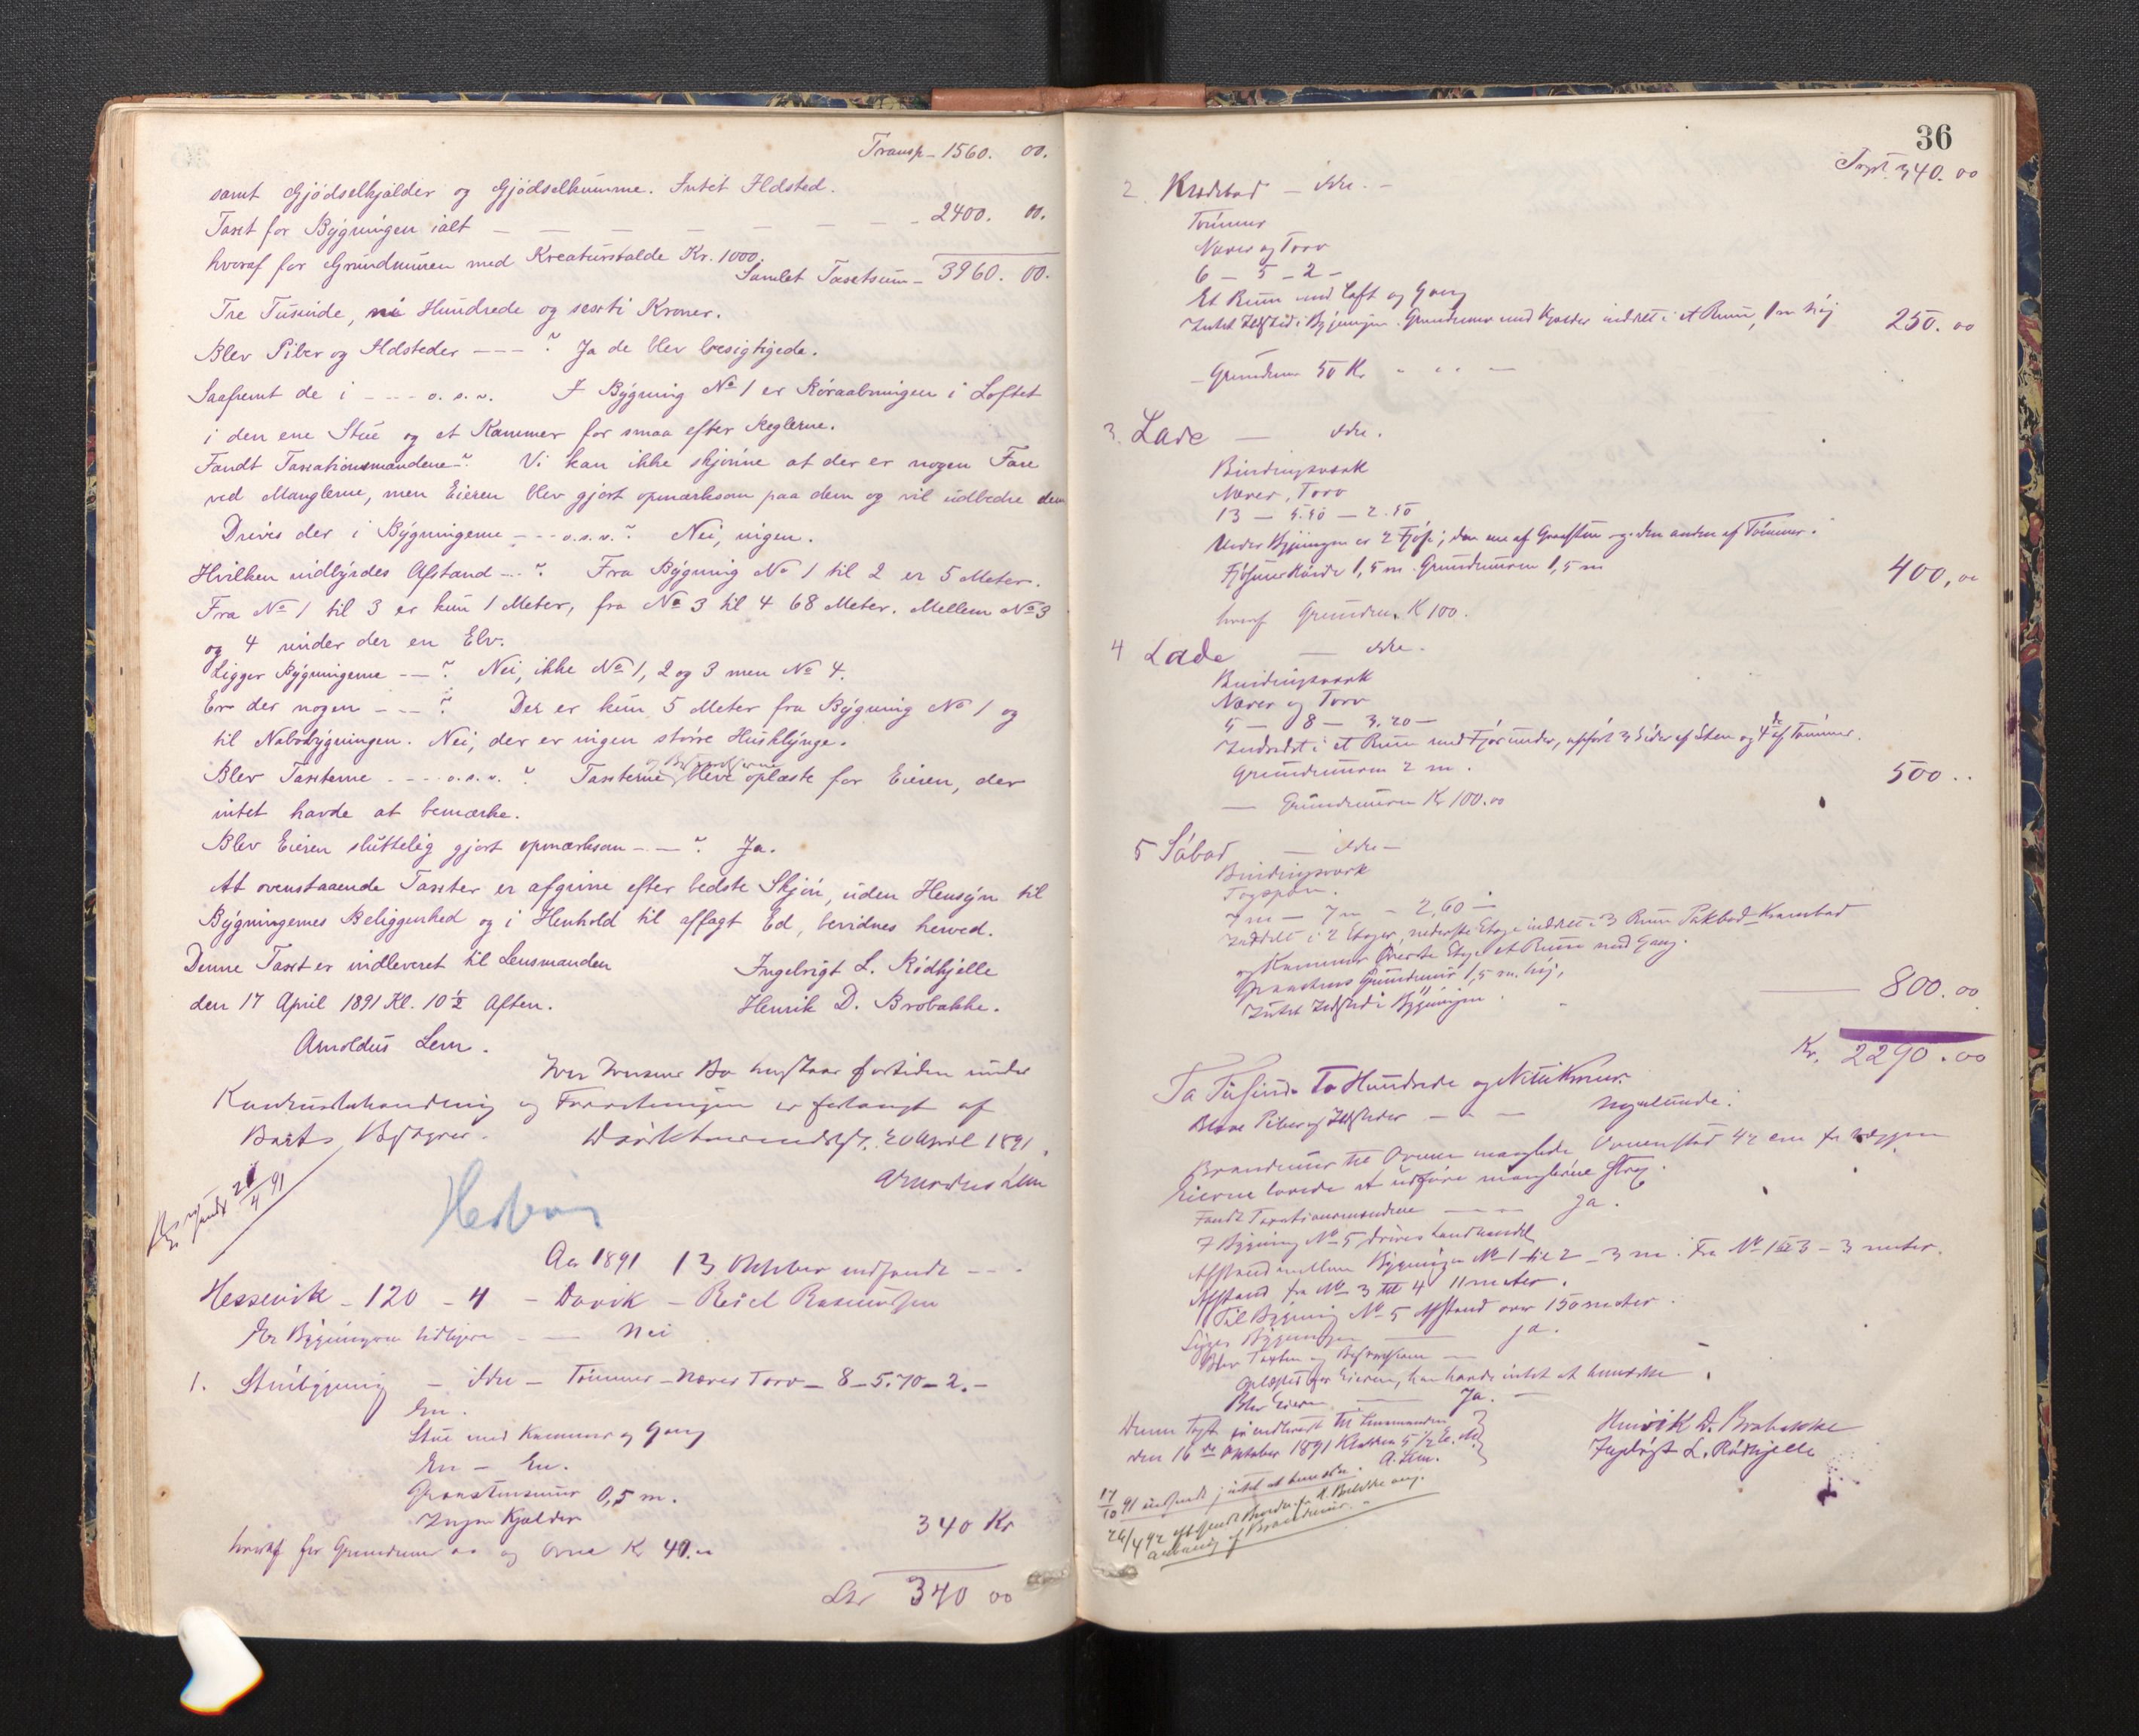 Transp - 1560. 00.
samt Gjödselkjælder og Gjödselkumme. Intet Ildsted.
Taxt for Bygningen ialt - - - - - - 2400. 00.
hvoraf for Grundmuren med Kreaturstalde Kr. 1000.
Samlet Taxtsum - 3960. 00.
Tre Tusinde, ni Hundrede og sexti Kroner.
Blev Piber og Ildsteder - - - ? Ja de blev besigtigede.
Saafremt de i - - - o. s. v. I Bygning No 1 er Röraabningen i Loftet
i den ene Stue og et Kammer for smaa efter Reglerne.
Fandt Taxationsmændene - ? Vi kan ikke skjönne at der er nogen Fare
ved Manglerne, men Eieren blev gjort opmærksom paa dem og vil udbedre dem
Drives der i Bygningerne - - - o.s.v. ? Nei, ingen.
Hvilken indbyrdes Afstand - - ? Fra Bygning No 1 til 2 er 5 Meter.
Fra No 1 til 3 er kun 1 Meter, fra No 3 til 4 68 Meter. Mellem No 3
og 4 rinder der en Elv.
Ligger Bygningerne - - ? Nei, ikke No 1, 2 og 3 men No 4.
Er der nogen - - - ? Der er kun 5 Meter fra Bygning No 1 og
til Nabobygningen. Nei, der er ingen större Husklynge.
Blev Taxterne - - - - o.s.v. ? Taxterne bleve oplæste for Eieren, der
intet havde at bemærke.
Blev Eieren sluttelig gjort opmærksom - - ? Ja.
At ovenstaaende Taxter er afgivne efter bedste Skjön, uden Hensyn til
Bygningernes Beliggenhed og i Henhold til aflagt Ed, bevidnes herved.
Denne Taxt er indleveret til Lensmanden
Ingebrigt L. Rödhjelle
den 17 April 1891 Kl. 10 1/2 Aften.
Henrik D. Brobakke.
Arnoldus Lem.
Bo henstaar fortiden under
Konkursbehandling og Forretningen er forlangt af
Boets Bestyrer. 20 April 1891.
Arnoldus Lem
21/4 91
Aar 1891 13 Oktober indfandt - - -
Hessevik - 120 - 4 - Davik - Rasmussen
Er Bygningerne tidligere - - Nei
1. Stuebygning - ikke - Tömmer - Næver Torv - 8 - 5.70 - 2. -
En.
Stue med Kammer og Gang
En - En.
Graastensmur 0,5 m.
Ingen Kjælder
340 Kr
hvoraf for Grundmur og Ovne Kr 40.
340 00
36
Trspt. 340. 00
2. - ikke. -
Tömmer
Næver og Torv
6 - 5 - 2 -
Et Rum med Loft og Gang
Intet Ildsted i Bygningen. Grundmur med Kjælder inddelt i et Rum, 1 m höj
250. 00
- Grundmur 50 Kr - - - -
3. Lade - ikke.
Bindingsværk
Næver, Torv
13 - 5.50 - 2.50
Under Bygningen er 2 Fjös; den ene af Graasten og den anden af Tömmer.
1,5 m. Grundmuren 1,5 m
400, 00
hvoraf Grundm. K 100.
4 Lade - ikke.
Bindingsværk
Næver og Torv
5 - 8 - 3.20 -
Inddelt i et Rum med Fjös under, opfört 3 Sider af Sten og 4de af Tömmer.
Grundmuren 2 m.
500 . .
- Grundmuren Kr 100.00
5 Söbod - ikke -
Bindingsværk
Tagspon.
7 m - 7 m - 2,60 -
Inddelt i 2 Etager, nederste Etage inddelt i 3 Rum Pakbod - Krambod
og Kammer Överste Etage et Rum med Gang.
Graastens Grundmur 1,5 m. höj,
Intet Ildsted i Bygningen.
800. 00
Kr. 2290. 00
To Tusinde To Hundrede og Nitti Kroner.
Bleve Piber og Ildsteder - - - Nogenlunde.
Brandmur til Ovnen manglede Ovnen stod 42 cm fra Væggen
Eierne lovede at udföre manglerne strax.
Fandt Taxationsmændene - - - Ja.
I Bygning No 5 drives Landhandel
Afstand mellem Bygningen No 1 til 2 - 3 m. Fra No 1 til 3 - 3 meter.
Afstand fra No 3 til 4 11 meter.
Til Bygning No 5 Afstand over 150 meter.
Ligger Bygningen - ja.
Blev Taxten og -
oplæst for Eieren, han havde intet at bemærke.
Blev Eieren - Ja. -
Denne Taxt er indleveret til Lensmanden
den 16de Oktober 1891 Klokken 5 1/2 E. M.
A. Lem.
Henrik D. Brobakke
Ingebrigt L. Rödhjelle
17/10 91 indsendt, intet at bemærke.
26/4 92
af Brandmur.